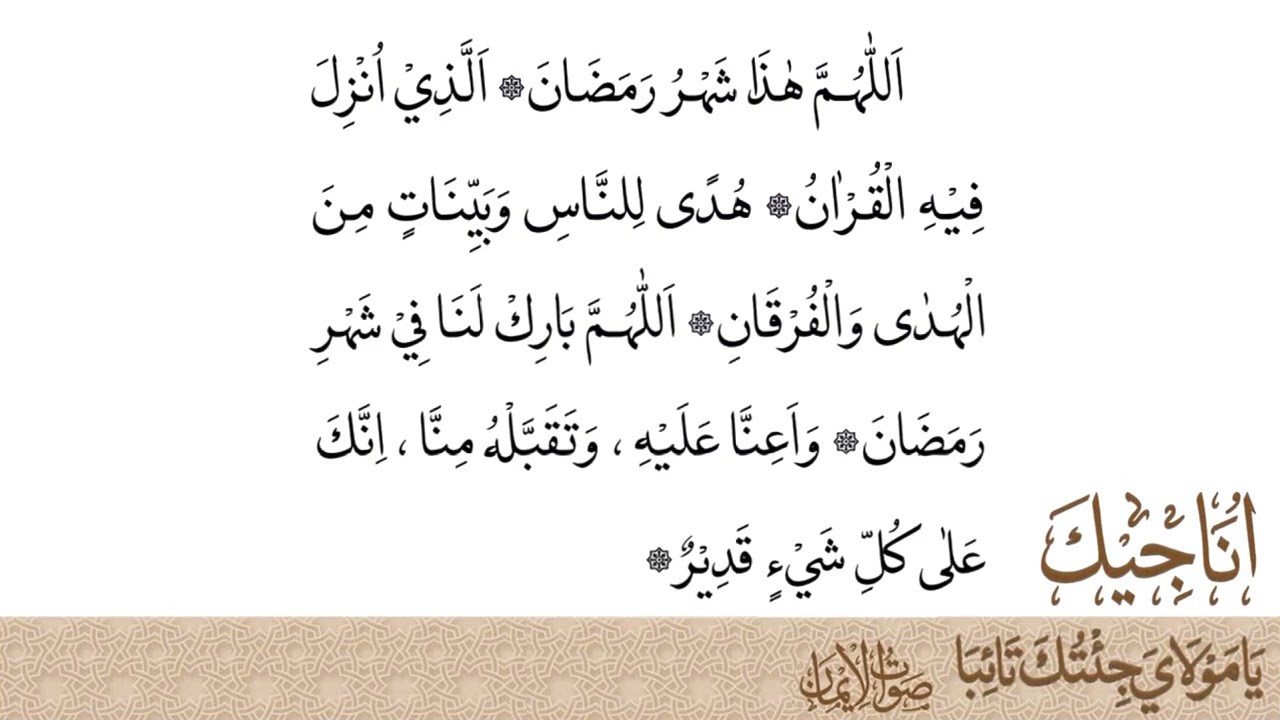 اَللّٰهُمَّ هٰذَا شَهْرُ رَمَضَانَ۞ اَلَّذِيْ اُنْزِلَ
فِيْهِ الْقُرْاٰنُ۞ هُدًى لِلنَّاسِ وَبَيِّنَاتٍ مِنَ
الْهُدٰى وَالْفُرْقَانِ۞ اَللّٰهُمَّ بَارِكْ لَنَا فِيْ شَهْرِ
رَمَضَانَ۞ وَاَعِنَّا عَلَيْهِ ، وَتَقَبَّلْهُ مِنَّا ، اِنَّكَ
عَلٰى كُلِّ شَيْءٍ قَدِيْرٌ۞
اُنَاجِيْكَ
يَا مَوْلَايَ جِئْتُكَ تَائِبَا
صَوْتُ الْاِيْمَان